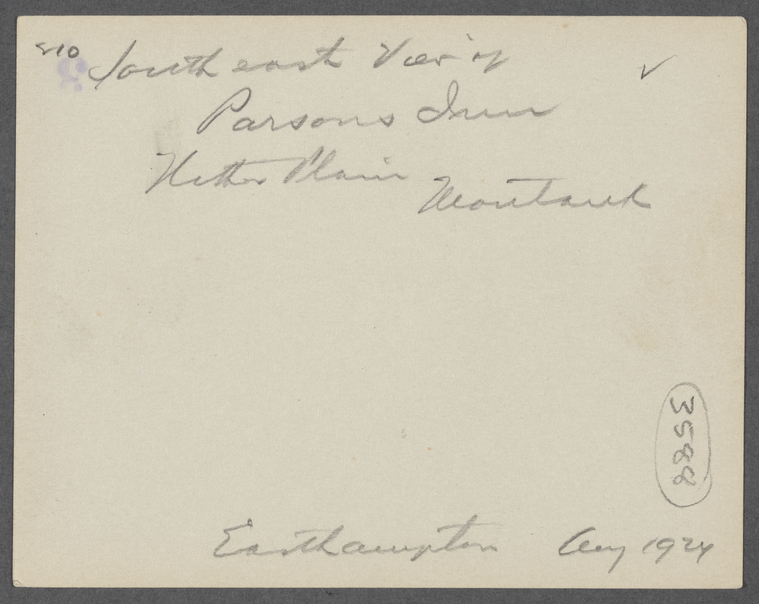 South east View of
Parsons Inn
Hither Plain
Montauk
3588
Easthampton Aug 1924